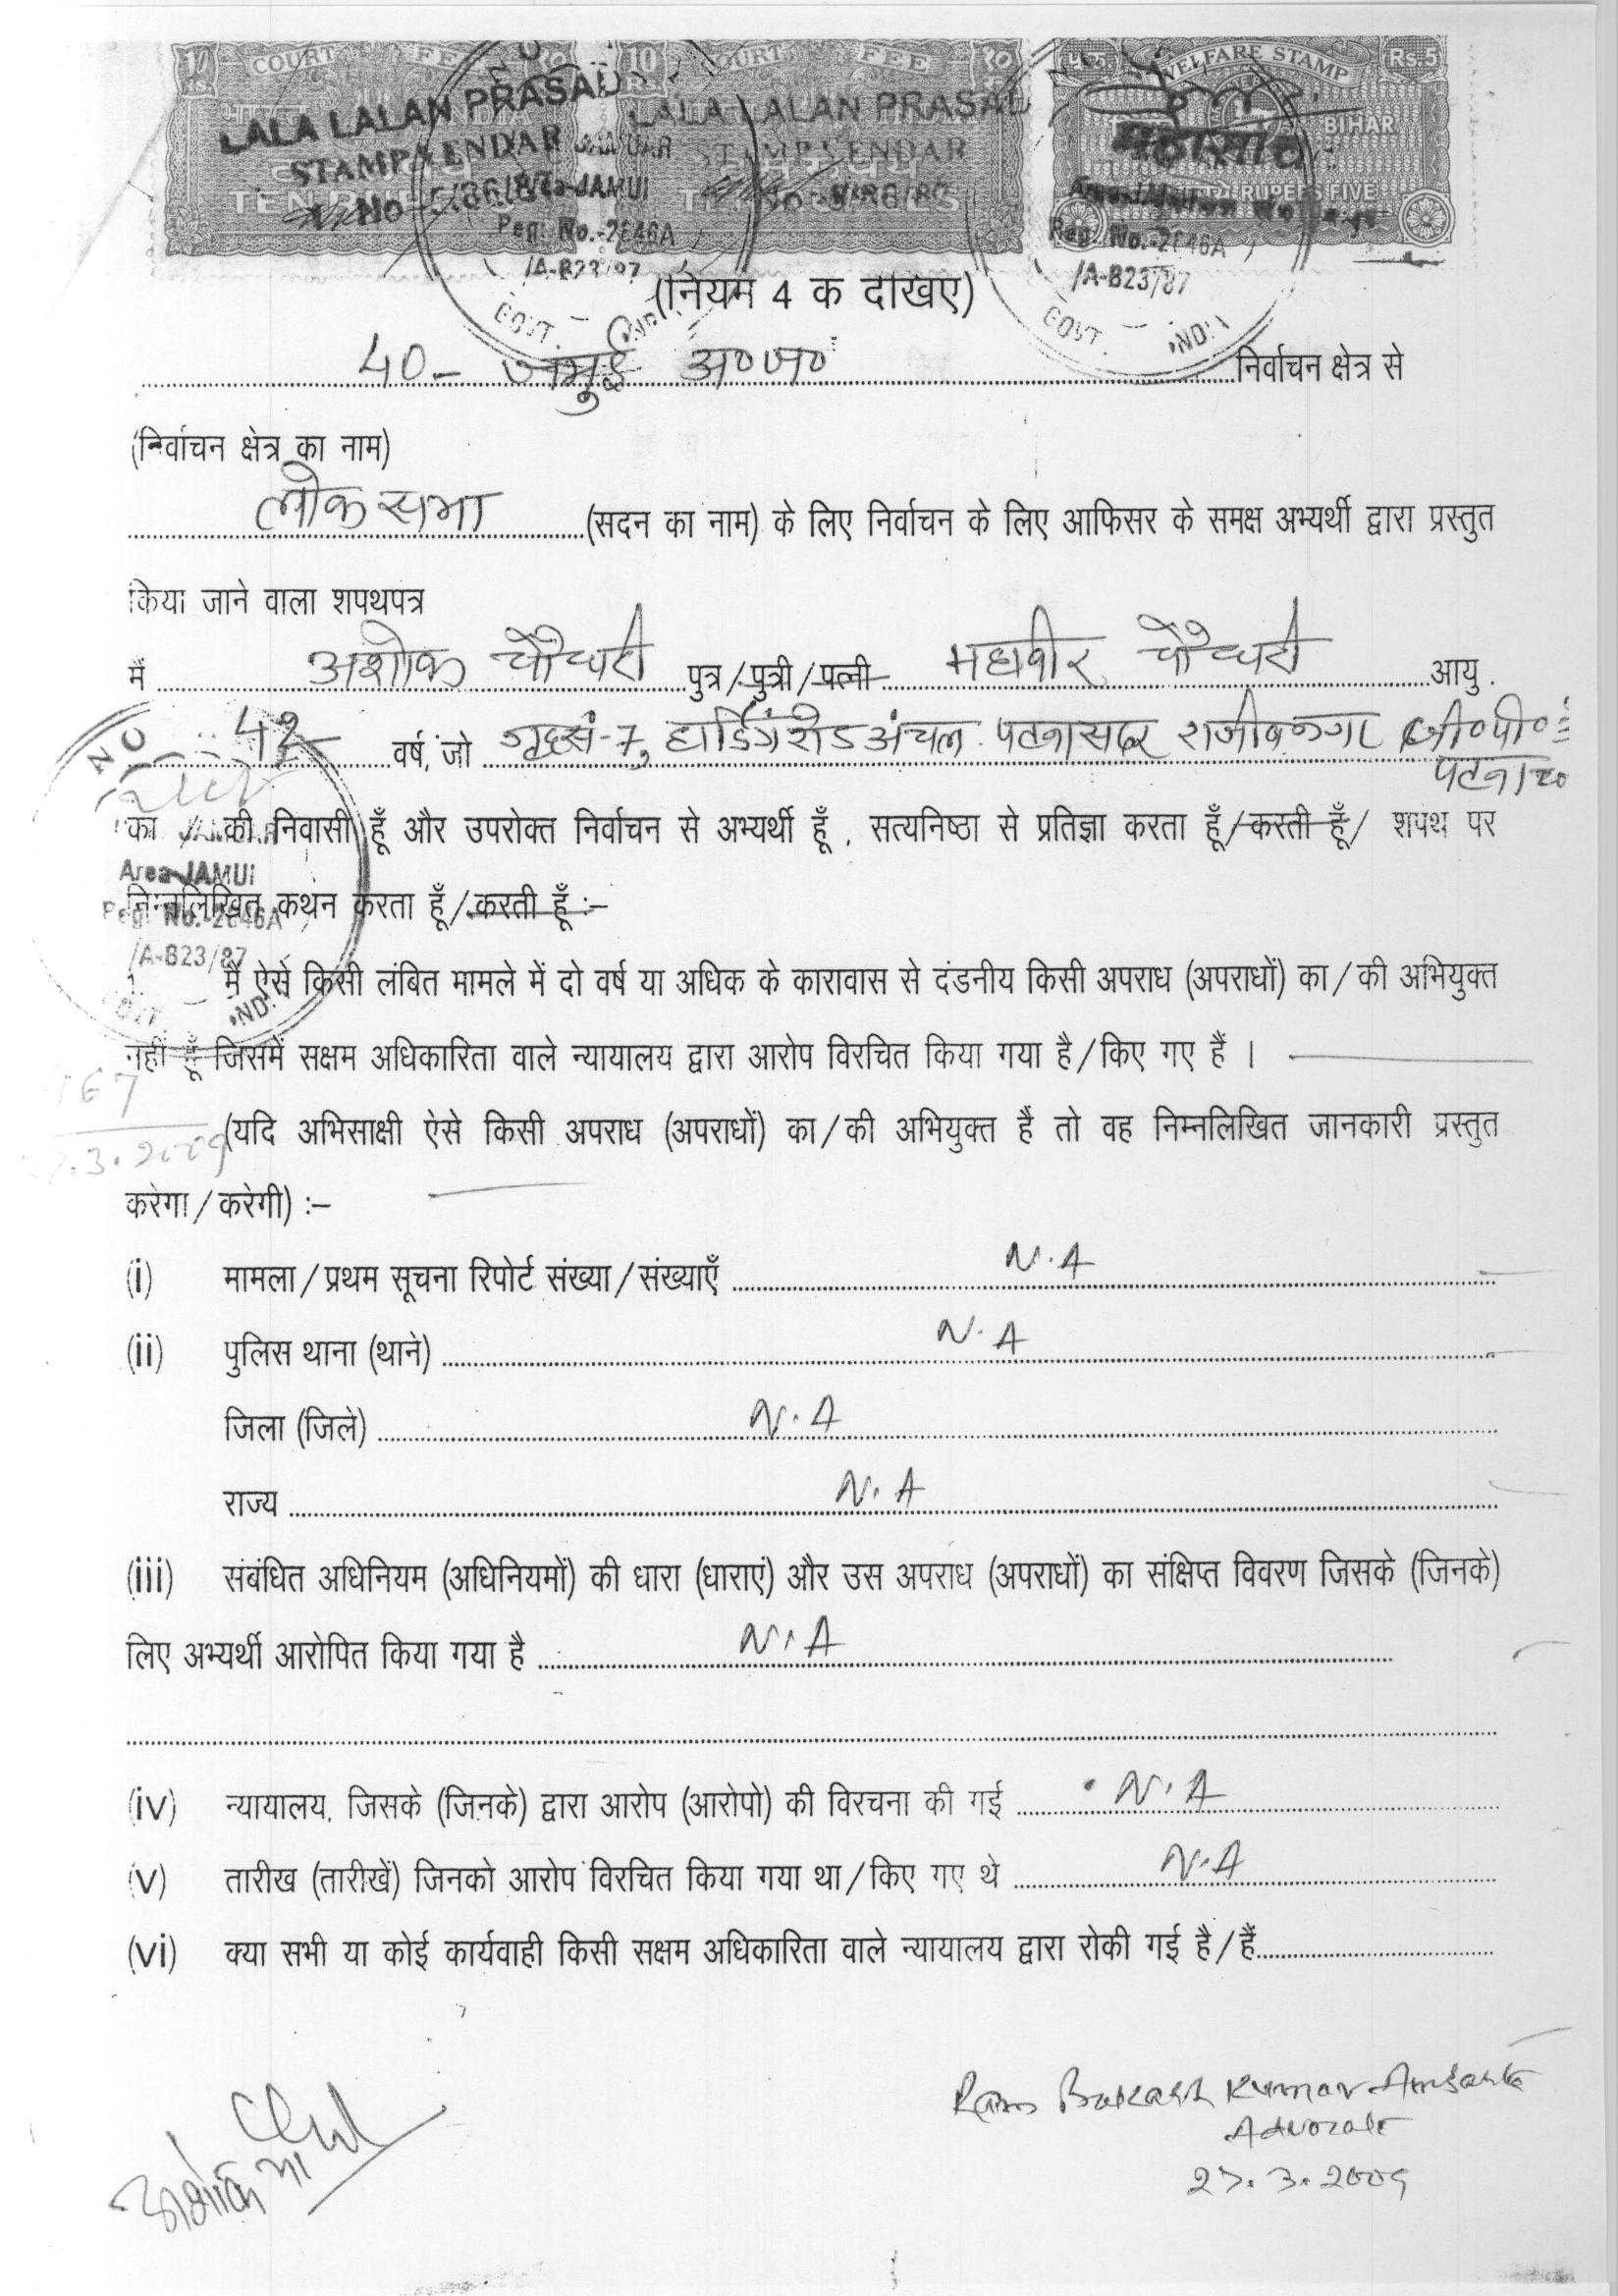 COURT FEE COURT FEE WELFARE STAMP Rs.5
LALA LALAN PRASAD LALA LALAN PRASAD BIHAR
RUPEES FIVE
JAMUI
Reg. No.-2846A Reg. No.-2846A
/A-823/87 /A-823/87
GOVT. IND. GOVT. IND.
(नियम 4 क देखिए)
40- जमुई अ०जा० निर्वाचन क्षेत्र से
(निर्वाचन क्षेत्र का नाम)
लोक सभा (सदन का नाम) के लिए निर्वाचन के लिए आफिसर के समक्ष अभ्यर्थी द्वारा प्रस्तुत
किया जाने वाला शपथपत्र
मैं अशोक चौधरी पुत्र/पुत्री/पत्नी महावीर चौधरी आयु
42 वर्ष, जो गृह सं-7, हार्डिंग रोड अंचल पटना सदर राजीवनगर जी०पी०
पटना
का / की निवासी हूँ और उपरोक्त निर्वाचन से अभ्यर्थी हूँ, सत्यनिष्ठा से प्रतिज्ञा करता हूँ/करती हूँ/ शपथ पर
Area-JAMUI
निम्नलिखित कथन करता हूँ/करती हूँ :–
Reg. No.-2846A
/A-823/87
1. मैं ऐसे किसी लंबित मामले में दो वर्ष या अधिक के कारावास से दंडनीय किसी अपराध (अपराधों) का/की अभियुक्त
IND.
नहीं हूँ जिसमें सक्षम अधिकारिता वाले न्यायालय द्वारा आरोप विरचित किया गया है/किए गए हैं ।
167
(यदि अभिसाक्षी ऐसे किसी अपराध (अपराधों) का/की अभियुक्त है तो वह निम्नलिखित जानकारी प्रस्तुत
.3.2009
करेगा/करेगी) :–
(i) मामला/प्रथम सूचना रिपोर्ट संख्या/संख्याएँ N.A
(ii) पुलिस थाना (थाने) N.A
जिला (जिले) N.A
राज्य N.A
(iii) संबंधित अधिनियम (अधिनियमों) की धारा (धाराएं) और उस अपराध (अपराधों) का संक्षिप्त विवरण जिसके (जिनके)
लिए अभ्यर्थी आरोपित किया गया है N.A
(iv) न्यायालय, जिसके (जिनके) द्वारा आरोप (आरोपो) की विरचना की गई N.A
(v) तारीख (तारीखें) जिनको आरोप विरचित किया गया था/किए गए थे N.A
(vi) क्या सभी या कोई कार्यवाही किसी सक्षम अधिकारिता वाले न्यायालय द्वारा रोकी गई है/हैं
Ram Kumar
Advocate
27.3.2009
अशोक चौधरी